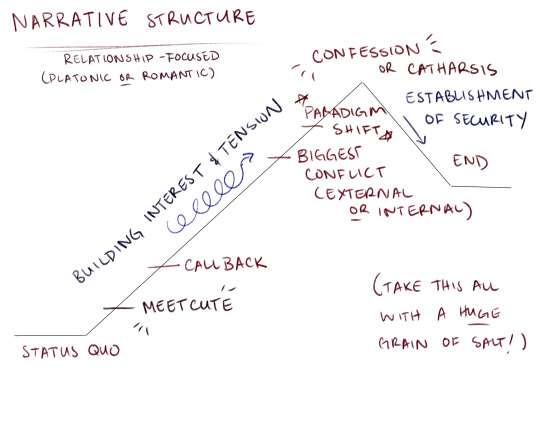 NARRATIVE STRUCTURE
RELATIONSHIP-FOCUSED
(PLATONIC OR ROMANTIC)
CONFESSION
OR CATHARSIS
ESTABLISHMENT
OF SECURITY
PARADIGM
SHIFT
BUILDING INTEREST & TENSION
BIGGEST
CONFLICT
(EXTERNAL
OR INTERNAL)
END
CALLBACK
MEETCUTE
STATUS QUO
(TAKE THIS ALL
WITH A HUGE
GRAIN OF SALT!)